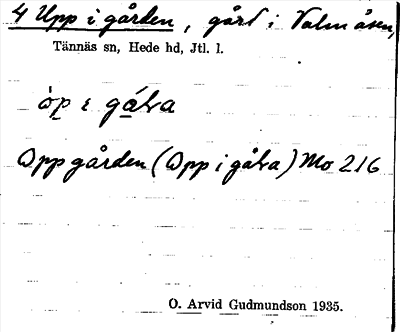 4 Upp i gården, gård i Valmåsen,
Tännäs sn, Hede hd, Jtl. l.
òp ɛ gáɫva
Oppgården (Opp i gåɫva) Mo 216
O. Arvid Gudmundson 1935.